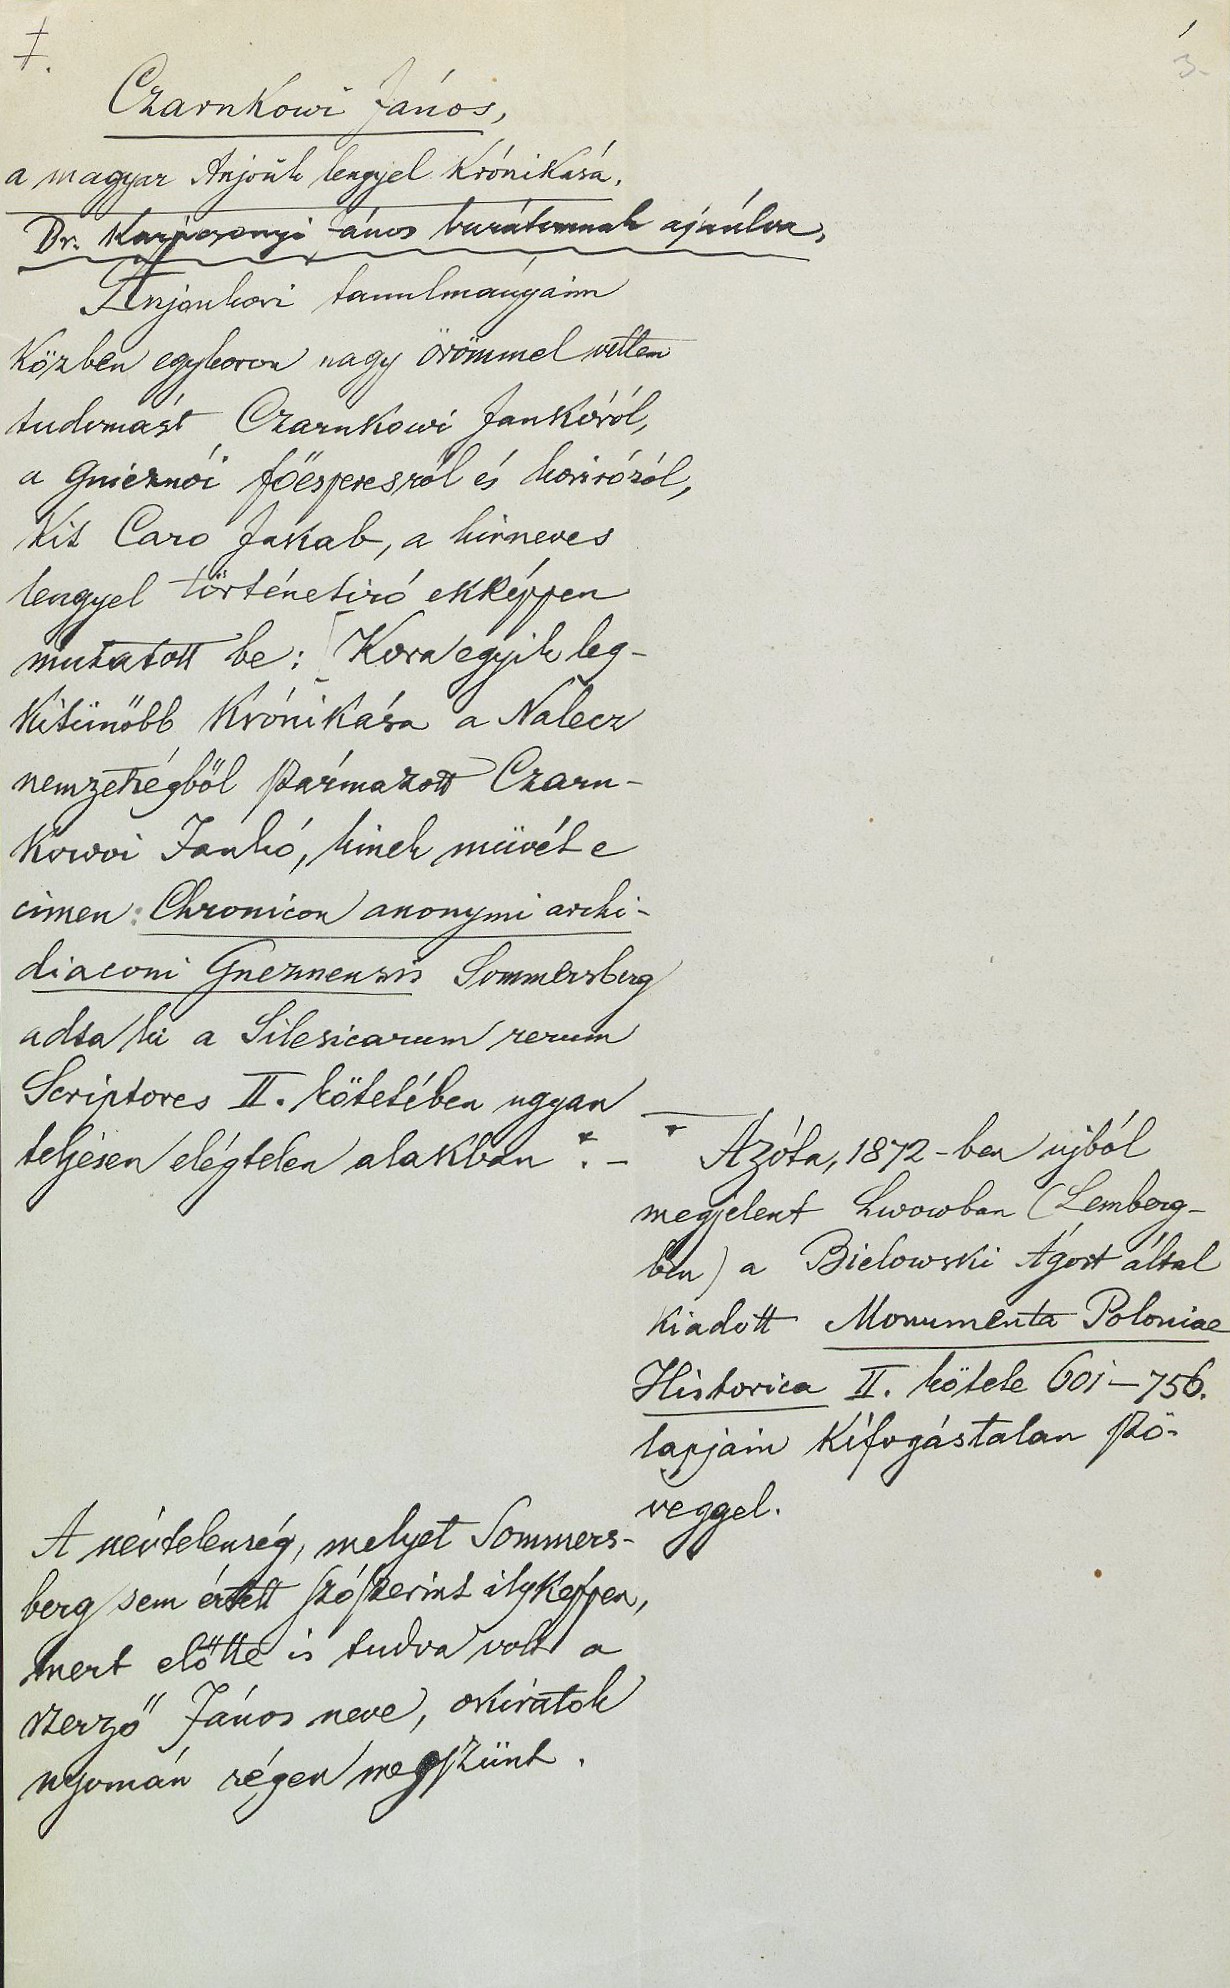 I.
3.
Czarnkówi János,
a magyar Anjouk lengyel Krónikásá.
Dr. Karácsonyi János barátomnak ajánlva,
Anjoukori tanulmányaim
közben egykoron nagy örömmel vettem
tudomást Czarnkowi Jankóról,
a gnieznói főesperesről és koriróról,
kit Caro Jakab, a hirneves
lengyel történetiró ekképpen
mutatott be: Kora egyik leg-
kitünőbb krónikása a Nalecz
nemzetségből származott Czarn-
kowoi Jankó, kinek müvét e
cimen: Chronicon anonymi archi-
diaconi Gneznensis Sommersberg
adta ki a Silesicarum rerum
Scriptores II. kötetében ugyan
teljesen elégtelen alakban *. –
* Azóta, 1872-ben ujból
megjelent Lwowban (Lemberg-
ben) a Bielowski Ágost által
kiadott Monumenta Poloniae
Historica II. kötete 601–756.
lapjain kifogástalan szö-
veggel.
A névtelenség, melyet Sommers-
berg sem értett szószerint ilyképpen,
mert előtte is tudva volt a
szerző János neve, okiratok
nyomán régen megszünt.